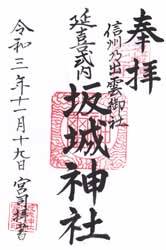 奉拝
信州乃出雲御社
延喜式内
坂城神社
令和三年十一月十九日
宮司拝書